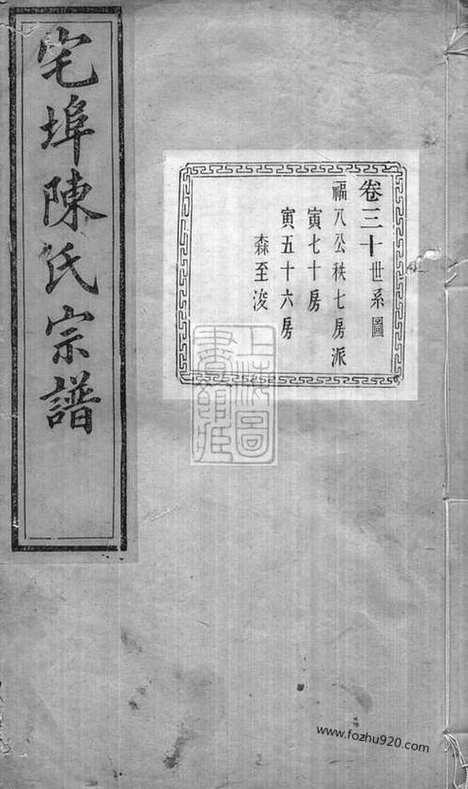 宅埠陳氏宗譜
卷三十世系圖
福八公秩七房派
寅七十房
寅五十六房
森至浚
上海圖
書館藏
www.fozhu920.com